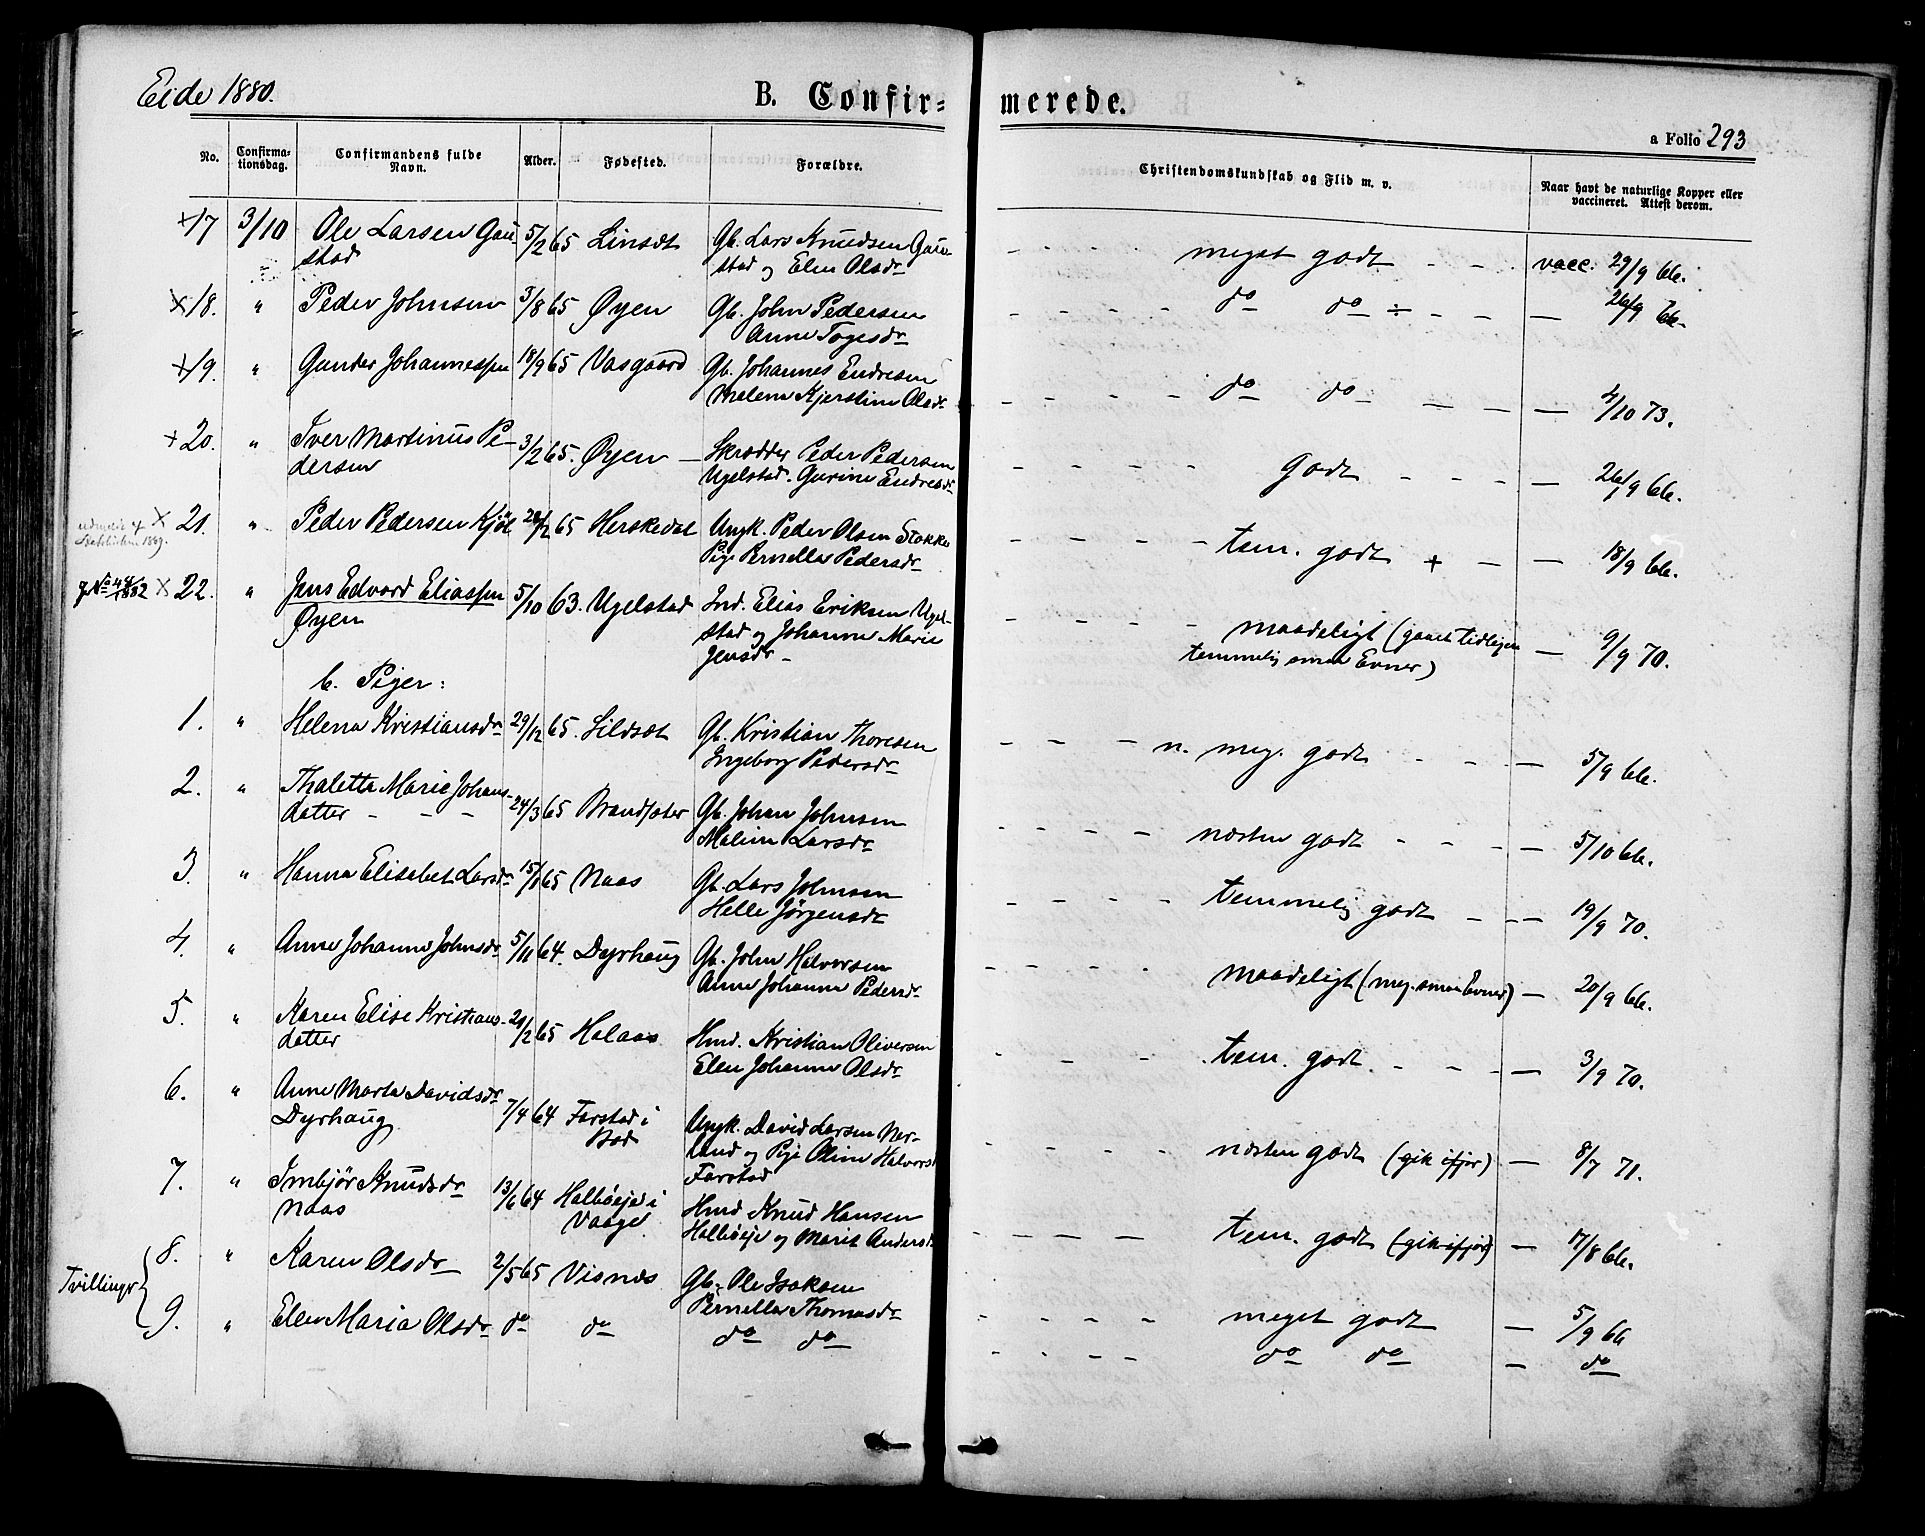 Eide 1880.
B. Confir-
merede.
a Folio 293
No.
Confirma-
tionsdag.
Confirmandens fulde
Navn.
Alder.
Fødested.
Forældre.
Christendomskundskab og Flid m. v.
Naar havt de naturlige Kopper eller
vaccineret. Attest derom.
×17 3/10 Ole Larsen Gau- 5/2 65 Linset Gb. Lars Knudsen Gau-
stad stad og Elen Olsdr
meget godt - - vacc. 29/9 66.
×18. " Peder Johnsen 3/8 65 Øyen Gb. John Pedersen
Anne Togesdr
do do ÷ - - — 26/9 66.
×19. " Gunder Johannessen 18/9 65 Vasgaard Gb. Johannes Endresen
Malene Kjerstine Olsdr
do do — — — 4/10 73.
×20. " Iver Martinus Pe- 3/2 65. Øyen — Skrædder Peder Pedersen
dersen Ugelstad. Gurine Endresdr
godt - - - — 26/9 66.
× 21. " Peder Pedersen Kjöl 65 Herskedal Ungk. Peder Olsen Stokke
Pige Pernelle Pedersdr
tem. godt + — — 18/9 66.
× 22. " Jens Edvard Eliassen 5/10 63. Ugelstad Ind. Elias Eriksen Ugel-
Øyen stad og Johanne Marie
Jensdr —
maadeligt (gaaet tidligere
temmelig smaa Evner) — 9/9 70.
b. Piger:
1. " Helena Kristiansdr 29/12 65. Sildset Gb. Kristian Thoresen
Ingeborg Pedersdr
n. meg. godt - - — 5/9 66.
2. " Thaletta Marie Johans- 24/3 65 Brandsæter Gb. Johan Johnsen
datter - - - Malene Larsdr
næsten godt - - - — 5/10 66.
3. " Hanna Elisabet Larsdr 65 Naas Gb. Lars Johnsen
Helle Jørgensdr
temmelig godt - - — 19/9 70.
4. " Anne Johanne Johnsdr 5/11 64. Dyrhaug Gb. John Halvorsen
Anne Johanne Pedersdr
maadeligt (meg. smaa Evner) — 20/9 66.
5. " Karen Elise Kristians- 65 Halaas Hmd. Kristian Oliversen
datter Elen Johanne Olsdr
tem. godt. - - - — 3/9 70.
6. " Anne Marta Davidsdr 7/4 64 Farstad i Ungk. David Larsen Nor-
Dyrhaug Bod land og Pige Oline Halvorsd
Farstad
næsten godt (gik ifjor) — 8/7 71.
7. " Imbjör Knudsdr 13/6 64 Halböeje i Hmd Knud Hansen
Naas Vaage Halböeje og Marit Andersd
tem. godt (gik ifjor) — 17/8 66.
Tvillinger
8. " Karen Olsdr 2/5 65 Visnæs Gb. Ole Isaksen
Pernelle Thomasdr
meget godt — 5/9 66
9. " Elen Maria Olsdr do do do do
do do — do